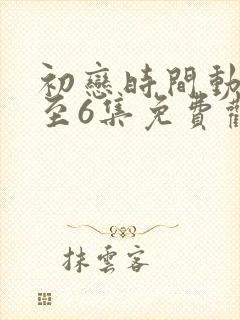 初戀時間動
至6集免費觀
抹雲客